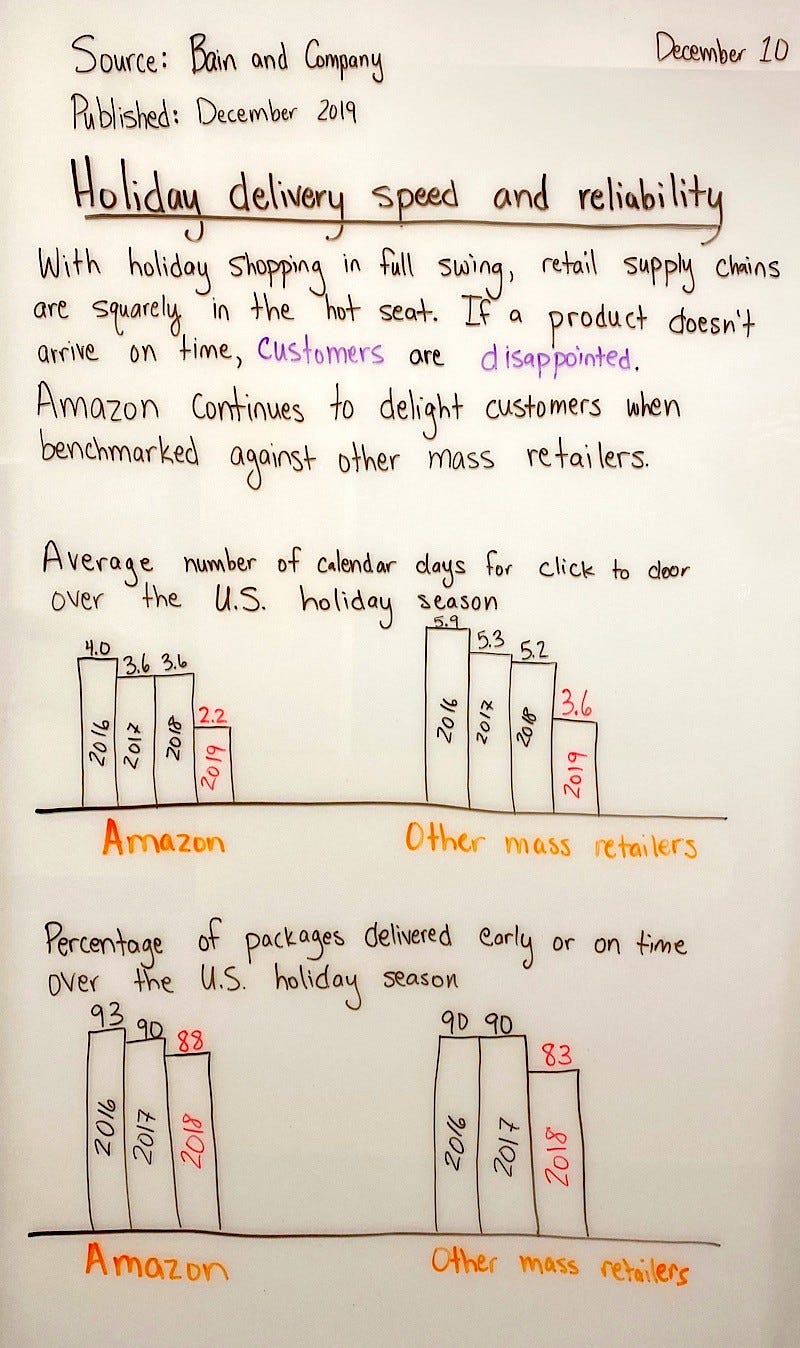 Source: Bain and Company
December 10
Published: December 2019
Holiday delivery speed and reliability
With holiday shopping in full swing, retail supply chains
are squarely in the hot seat. If a product doesn't
arrive on time, customers are disappointed.
Amazon continues to delight customers when
benchmarked against other mass retailers.
Average number of calendar days for click to door
over the U.S. holiday season
4.0 3.6 3.6 2.2
2016 2017 2018 2019
Amazon
5.9 5.3 5.2 3.6
2016 2017 2018 2019
Other mass retailers
Percentage of packages delivered early or on time
over the U.S. holiday season
93 90 88
2016 2017 2018
Amazon
90 90 83
2016 2017 2018
Other mass retailers